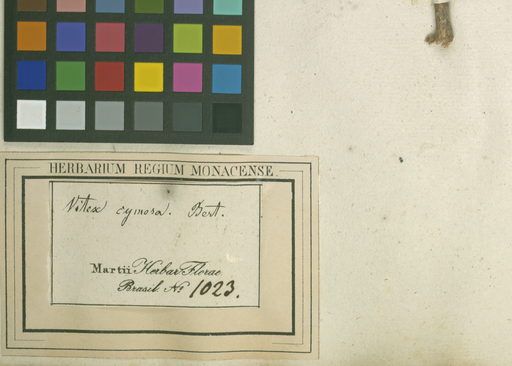 HERBARIUM REGIUM MONACENSE.
Vitex cymosa. Bert.
Martii Herbar. Florae
Brasil. No 1023.